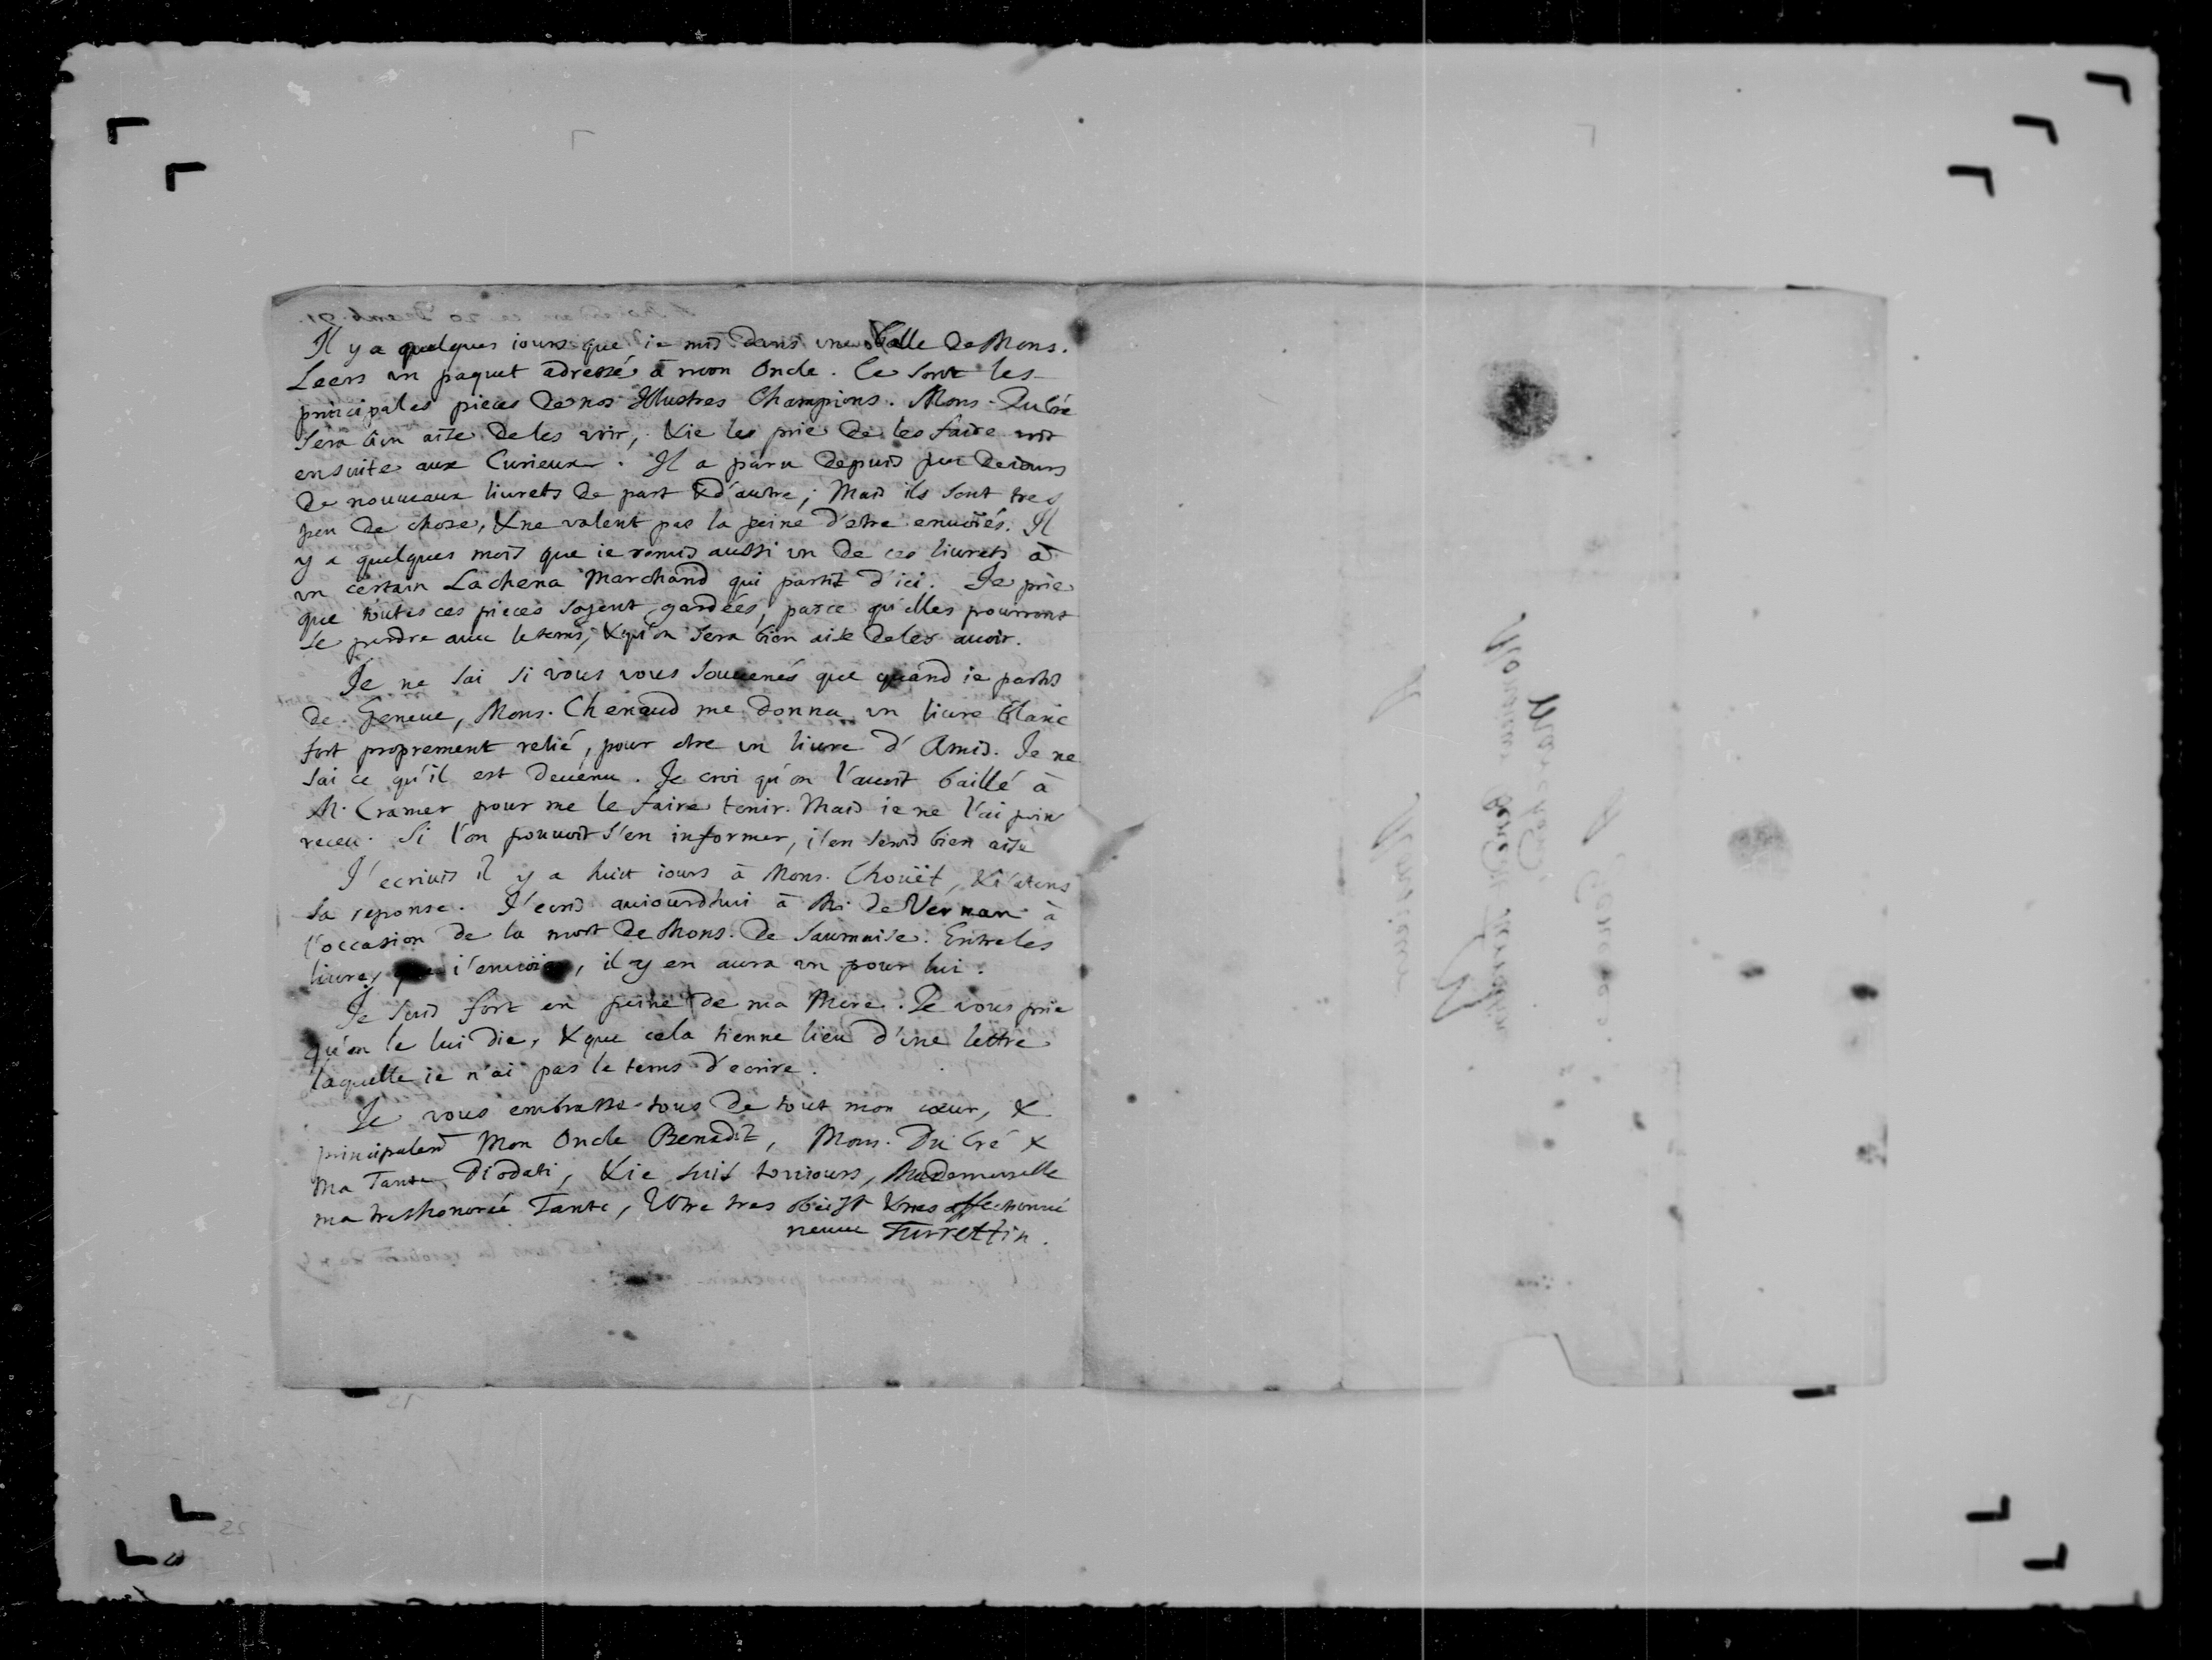 Il y a quelques iours que ie mis dans une Balle de Mons.
Leers un paquet adressé à mon Oncle. Ce sont les
principales pieces de nos Illustres Champions. Mons. Du Cré
sera bien aise de les voir, & ie les prie de les faire voir
ensuite aux Curieux. Il a paru depuis peu de iours
de nouueaux liurets de part & d'autre; Mais ils sont tres
peu de chose, & ne valent pas la peine d'etre enuoiés. Il
y a quelques mois que ie remis aussi un de ces liurets à
un certain Lachena Marchand qui partit d'ici. Je prie
que toutes ces pieces soyent gardées, parce qu'elles pourront
se perdre auec le tems, & qu'on sera bien aise de les auoir.
Je ne sai si vous vous souuenés que quand ie partis
de Geneue, Mons. Chenaud me donna un liure blanc
fort proprement relié, pour etre un liure d'Amis. Je ne
sai ce qu'il est deuenu. Je croi qu'on l'auoit baillé à
M. Cramer pour me le faire tenir. Mais ie ne l'ai poin
receu. Si l'on pouuoit s'en informer, i'en serois bien aise
J'ecriuis il y a huict iours à Mons. Chouët, & i'atens
sa reponse. J'ecris auiourdhui à Mr. de Vernan à
l'occasion de la mort de Mons. de Saumaise. Entre les
liures que i'enuoie, il y en aura un pour lui.
Je suis fort en peine de ma Mere. Je vous prie
qu'on le lui die, & que cela tienne lieu d'une lettre
laquelle ie n'ai pas le tems d'ecrire.
Je vous embrasse tous de tout mon cœur, &
principalemt Mon Oncle Benedit, Mons. Du Cré &
ma Tante Diodati, & ie suis touiours, Mademoiselle
ma treshonorée Tante, Votre tres obeisst & tres affectionné
neueu Turrettin.